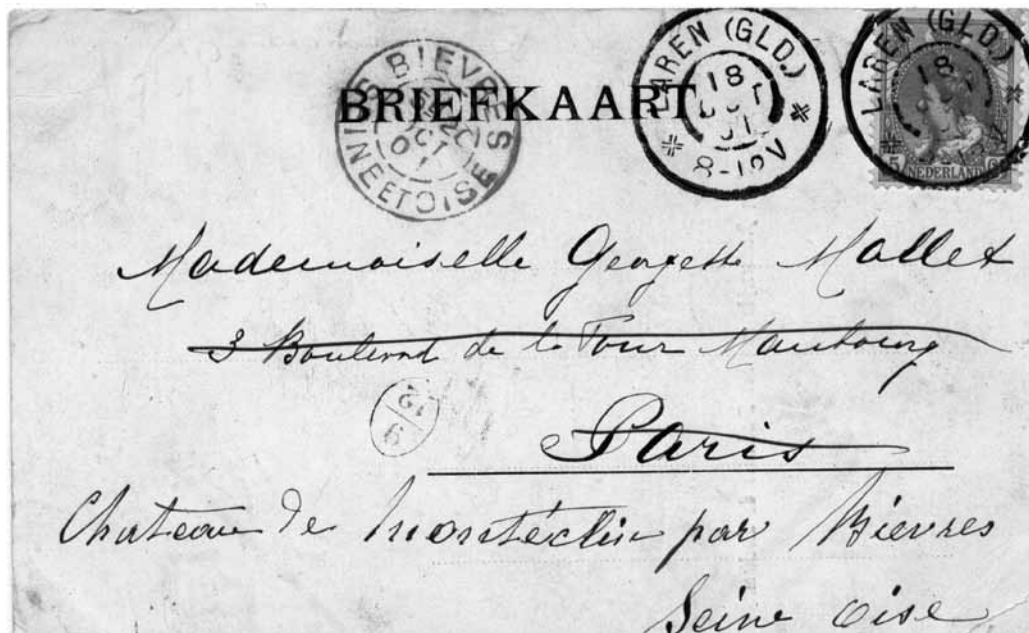 BRIEFKAART
BIEVRES SEINE ET OISE
OCT
01
LAREN (GLD.)
18
OCT
01
8-12V
LAREN (GLD.)
18
NEDERLAND
5
Mademoiselle Georgette Mallet
3 Boulevard de la Tour Maubourg
Paris
12
9
Chateau de Montéclin par Bièvres
Seine Oise